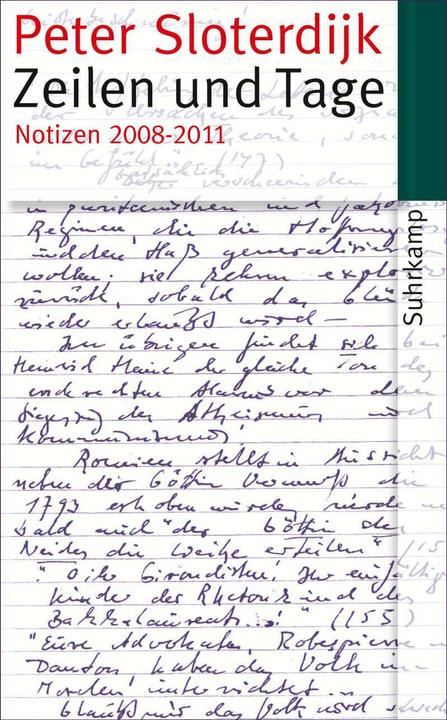 Peter Sloterdijk
Zeilen und Tage
Notizen 2008-2011
Suhrkamp
der Ursachen des
Theorie, son
im Gefühl" (147)
verschwinden
in puritanischen und
Regimen, die die Hoffnung
und den Haß generalisieren
wollen: sie kehren explo
zurück, sobald das Glü
wieder erlaubt wird —
Im übrigen findet sich bei
Heinrich Heine der gleiche Ton des
vor dem
Siegeszug des Atheismus und
Kommunismus!
Romieu stellt in Aussicht
neben der Göttin Vernunft die
1793 erhoben wurde, würde
bald auch "der Göttin des
Neides die Weihe erteilen" (15
"O ihr Girondisten! Ihr einfältigen
Kinder der Rhetorik und des
Bakkalaureats..!" (155)
"Eure Advokaten, Robespierre
Danton haben das Volk im
Morden unterrichtet...
Glaubt mir das Volk wird